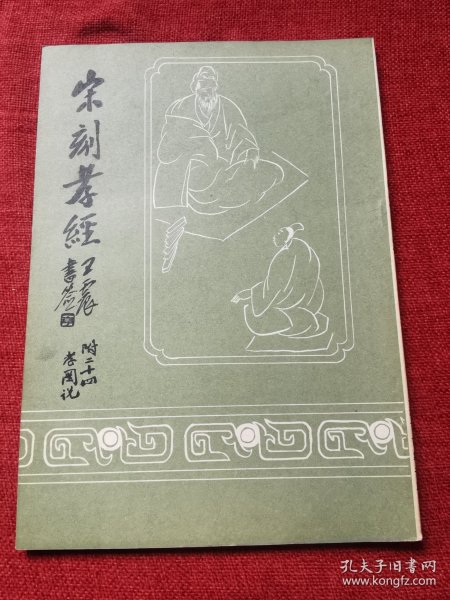 宋刻孝經
王震
書签
附二十四
孝图说
孔夫子旧书网
www.kongfz.com